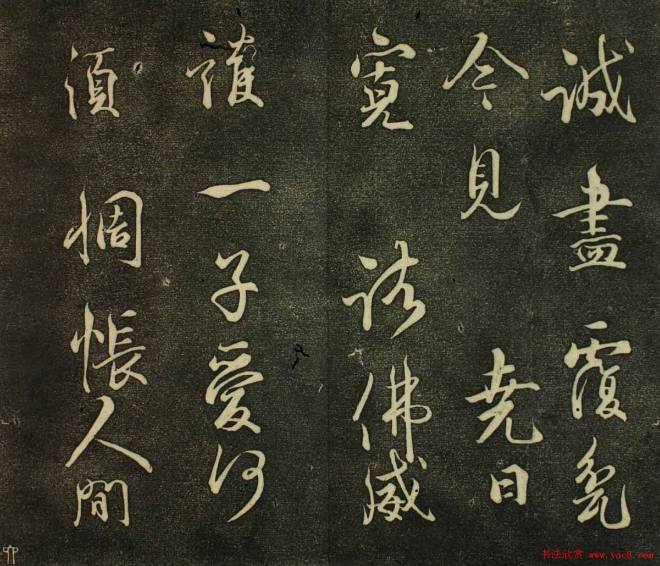 誠盡覆瓫
今見堯日
寬諸佛威
護一子愛何
須惆悵人間
书法欣赏 www.yac8.com